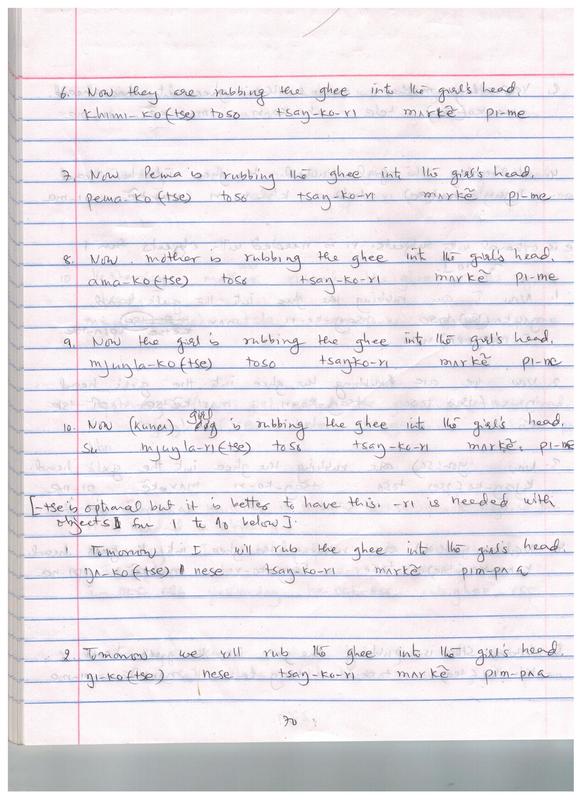 6. Now they are rubbing the ghee into the girl's head.
khimi-ko(tse) toso tsaŋ-ko-ri mʌrkẽ pi-me
7. Now Pema is rubbing the ghee into the girl's head.
pema-ko(tse) toso tsaŋ-ko-ri mʌrkẽ pi-me
8. Now mother is rubbing the ghee into the girl's head.
ama-ko(tse) toso tsaŋ-ko-ri mʌrkẽ pi-me
9. Now the girl is rubbing the ghee into the girl's head.
mjuŋla-ko(tse) toso tsaŋko-ri mʌrkẽ pi-me
10. Now (kunai) girl is rubbing the ghee into the girl's head.
su mjuŋla-ri(tse) toso tsaŋ-ko-ri mʌrkẽ. pi-me
[-tse is optional but it is better to have this. -ri is needed with
objects for 1 to 10 below].
Tomorrow I will rub the ghee into the girl's head.
ŋʌ-ko(tse) nese tsaŋ-ko-ri mʌrkẽ pim-pʌ a
2. Tomorrow we will rub the ghee into the girl's head.
ŋi-ko(tse) nese tsaŋ-ko-ri mʌrkẽ pim-pʌ a
70